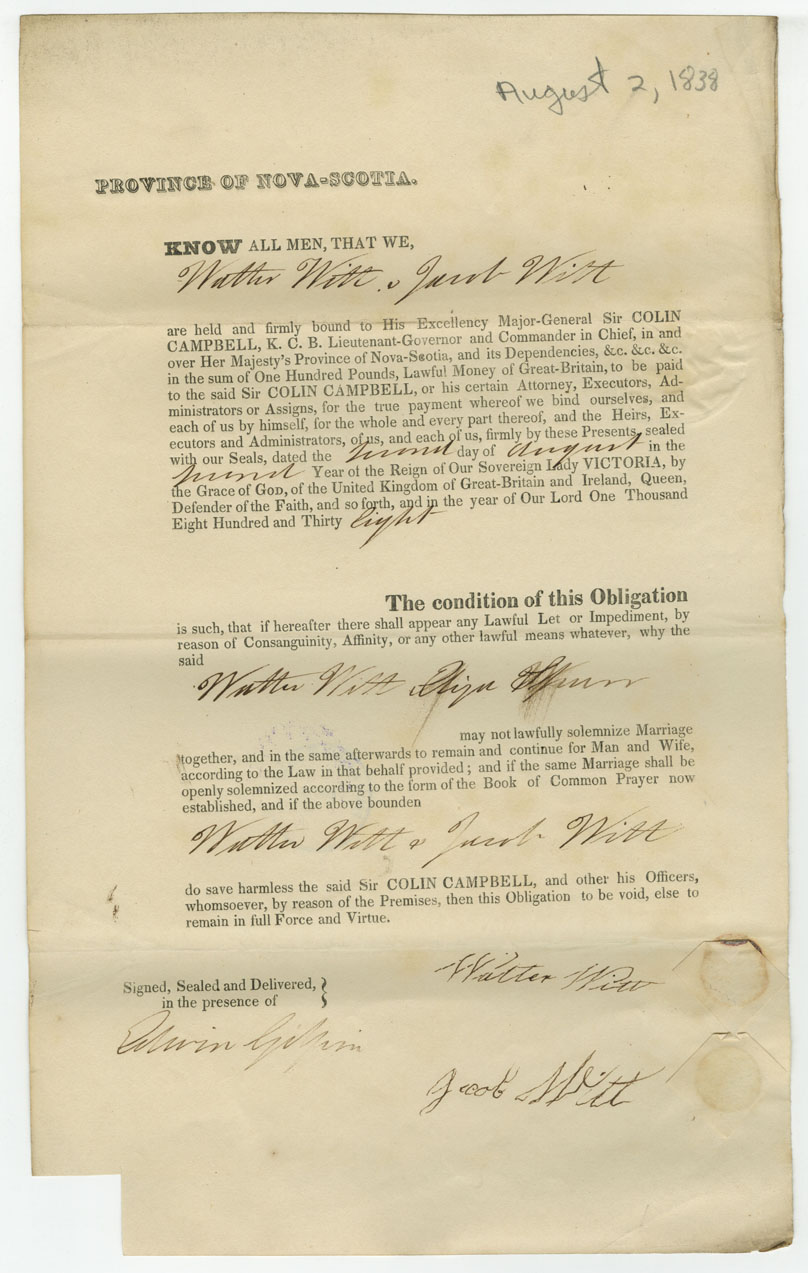 August 2, 1838
PROVINCE OF NOVA-SCOTIA.
KNOW ALL MEN, THAT WE,
Walter Witt & Jacob Witt
are held and firmly bound to His Excellency Major-General Sir COLIN
CAMPBELL, K. C. B. Lieutenant-Governor and Commander in Chief, in and
over Her Majesty's Province of Nova-Scotia, and its Dependencies, &c. &c. &c.
in the sum of One Hundred Pounds, Lawful Money of Great-Britain, to be paid
to the said Sir COLIN CAMPBELL, or his certain Attorney, Executors, Ad-
ministrators or Assigns, for the true payment whereof we bind ourselves, and
each of us by himself, for the whole and every part thereof, and the Heirs, Ex-
ecutors and Administrators, of us, and each of us, firmly by these Presents, sealed
with our Seals, dated the Second day of August in the
Second Year of the Reign of Our Sovereign Lady VICTORIA, by
the Grace of GOD, of the United Kingdom of Great-Britain and Ireland, Queen,
Defender of the Faith, and so forth, and in the year of Our Lord One Thousand
Eight Hundred and Thirty Eight
The condition of this Obligation
is such, that if hereafter there shall appear any Lawful Let or Impediment, by
reason of Consanguinity, Affinity, or any other lawful means whatever, why the
said
Walter Witt & Eliza
may not lawfully solemnize Marriage
together, and in the same afterwards to remain and continue for Man and Wife,
according to the Law in that behalf provided; and if the same Marriage shall be
openly solemnized according to the form of the Book of Common Prayer now
established, and if the above bounden
Walter Witt & Jacob Witt
do save harmless the said Sir COLIN CAMPBELL, and other his Officers,
whomsoever, by reason of the Premises, then this Obligation to be void, else to
remain in full Force and Virtue.
Signed, Sealed and Delivered,
in the presence of
Walter Witt
Edwin Gilpin
Jacob Witt